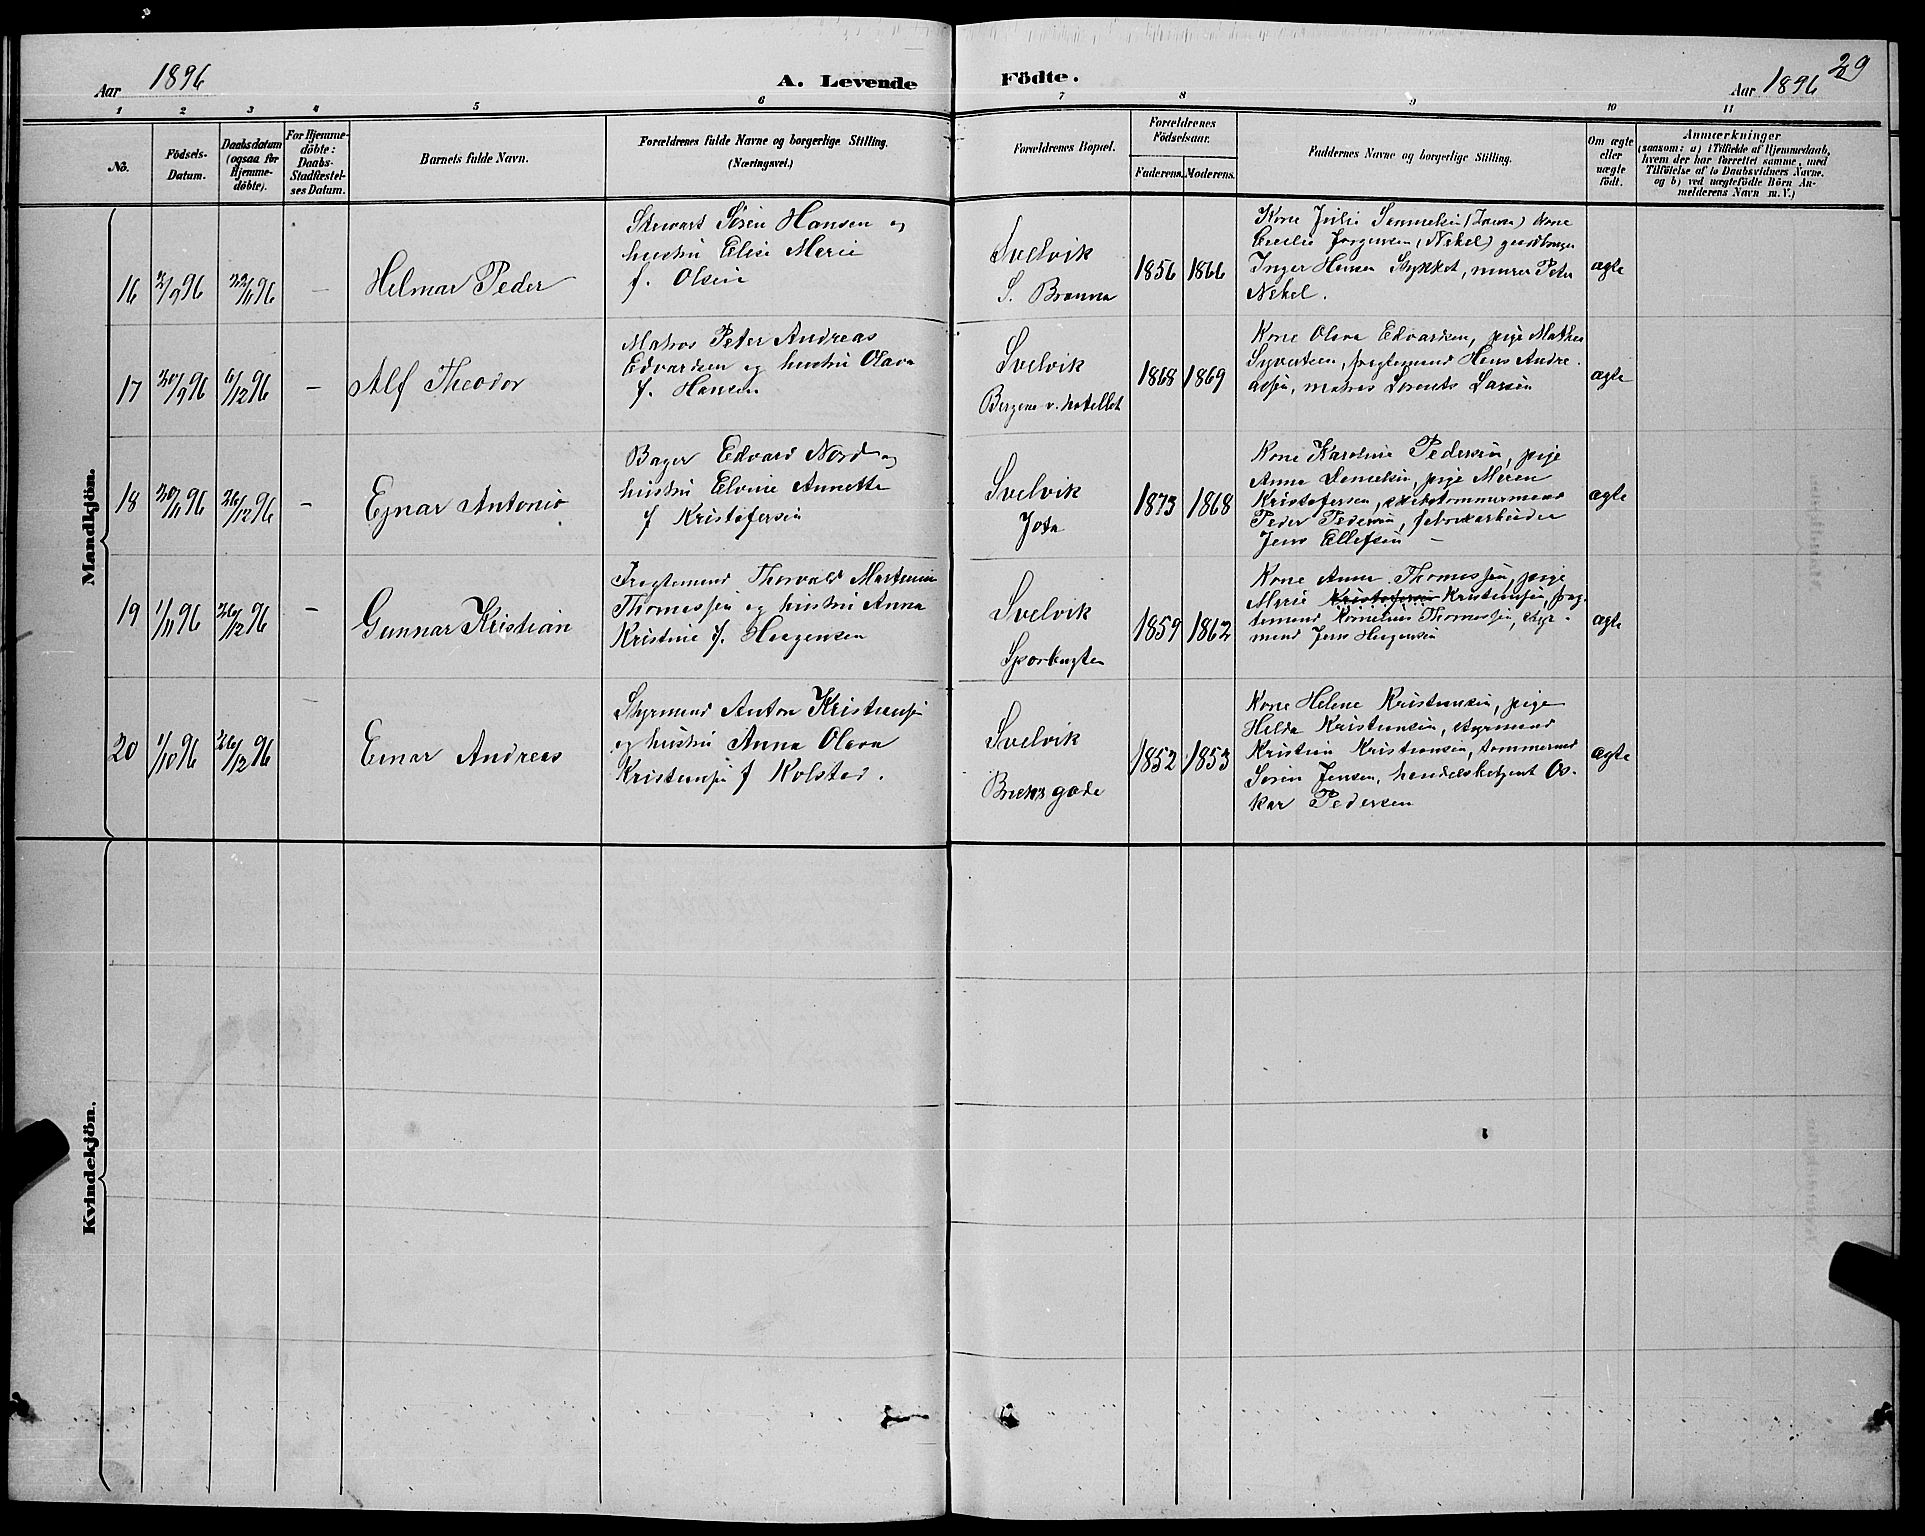 Aar 1896
A. Levende Födte.
Aar 1896
29
1 2 3 4 5 6 7 8 9 10 11
No.
Födsels-
Datum.
Daabsdatum
(ogsaa for
Hjemme-
döbte).
For Hjemme-
döbte:
Daabs-
Stadfæstel-
ses Datum.
Barnets fulde Navn.
Forældrenes fulde Navne og borgerlige Stilling.
(Næringsvei.)
Forældrenes Bopæl.
Forældrenes
Födselsaar.
Faderens. Moderens.
Faddernes Navne og borgerlige Stilling.
Om ægte
eller
uægte
födt.
Anmærkninger
(saasom: a) i Tilfælde af Hjemmedaab,
hvem der har forrettet samme, med
Tilföielse af to Daabsvidners Navne.
og b) ved uægtefödte Börn An-
melderens Navn m. V.)
Mandkjön.
16 2/9 96 22/11 96 —
Helmar Peder
Stewart Sören Hansen og
hustru Elise Marie
f. Olsen
Svelvik
1856 1866
Kone Julie Samuelsen (Louise) Kone
Cecilie Jorgensen, (Nekel)
Inger Hansen Stykket, murer Peter
Nekel.
ægte
17 30/9 96 6/12 96 —
Alf Theodor
Matros Peter Andreas
Edvardsen og hustru Olava
f. Hansen
Svelvik
Bergene v. hotellet
1868 1869
Kone Olava Edvardsen, pige Mathea
Syvertsen, fragtemand Hans Andre-
assen, matros Lorents Larsen
ægte
18 30/11 96 26/12 96 —
Ejnar Antonio
Bager Edvard Nord og
hustru Elvine Annette
f Kristofersen
Svelvik
1873 1868
Kone Karoline Pedersen, pige
Anna Danielsen, pige Maren
Kristofersen, skibstømmermand
Peder Pedersen, fabrikarbeider
Jens Ellefsen —
ægte
19 1/11 96 26/12 96 —
Gunnar Kristian
Fragtemand Thorvald Martinius
Thomassen og hustru Anna
Kristine f. Haagensen
Svelvik
Sporkugten
1859 1862
Kone Anna Thomassen, pige
Marie Kristofersen Kristiansen, frag-
temand Kornelius Thomassen, styr-
mand Jens Haagensen
ægte
20 1/10 96 26/12 96 —
Einar Andreas
Styrmand Anton Kristiansen
og hustru Anna Olava
Kristiansen f Kolstad.
Svelvik
1852 1853
Kone Helene Kristiansen, pige
Hilda Kristiansen, styrmand
Kristian Kristiansen, tømmermd
Sören Jensen, handelsbetjent Os-
kar Pedersen
ægte
Kvindekjön.